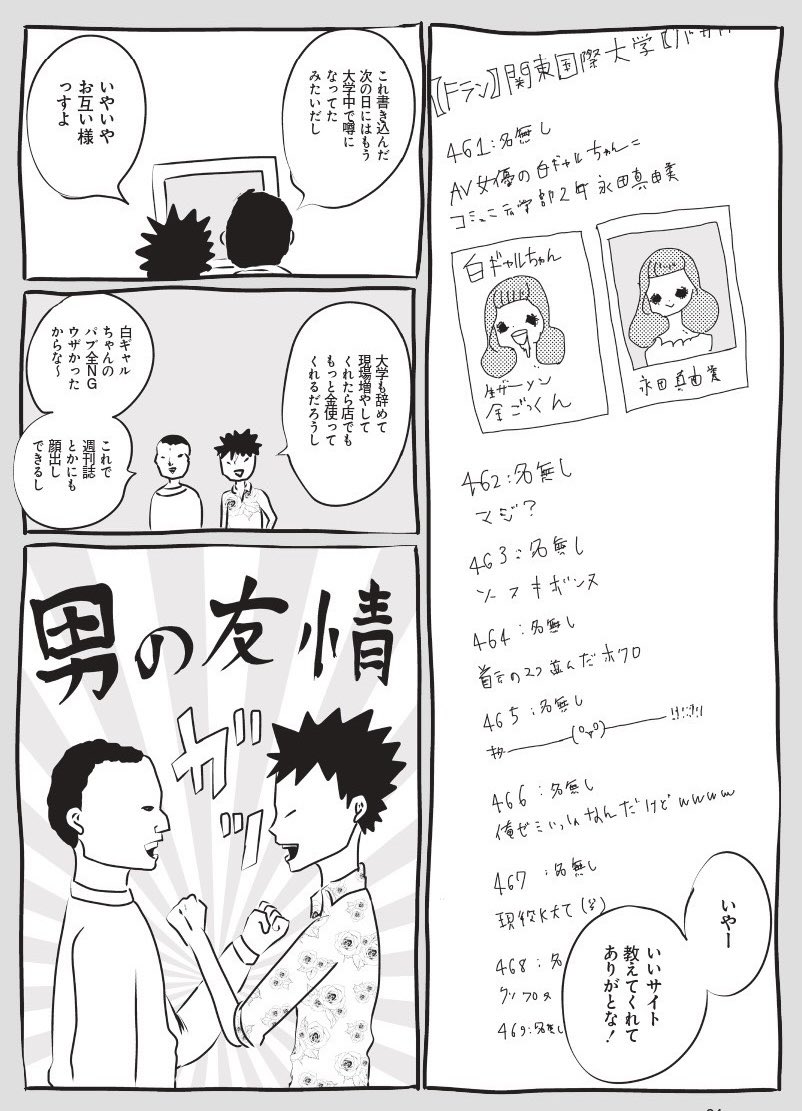 【Fラン】関東国際大学
461:名無し
AV女優の白ギャルちゃん=
コミュニティ学部2年 永田真由美
白ギャルちゃん
生ザーメン
全ごっくん
永田真由美
462:名無し
マジ?
463:名無し
464:名無し
首元の2つ並んだホクロ
465:名無し
キタ
466:名無し
俺ゼミいっしょなんだけどwwww
467:名無し
468:名
グロ
469:名無し
いやー
いいサイト
教えてくれて
ありがとな!
これ書き込んだ
次の日にはもう
大学中で噂に
なってた
みたいだし
いやいや
お互い様
っすよ
大学も辞めて
現場増やして
くれたら店でも
もっと金使って
くれるだろうし
白ギャル
ちゃんの
パブ全NG
ウザかった
からな〜
これで
週刊誌
とかにも
顔出し
できるし
男の友情
ガッ